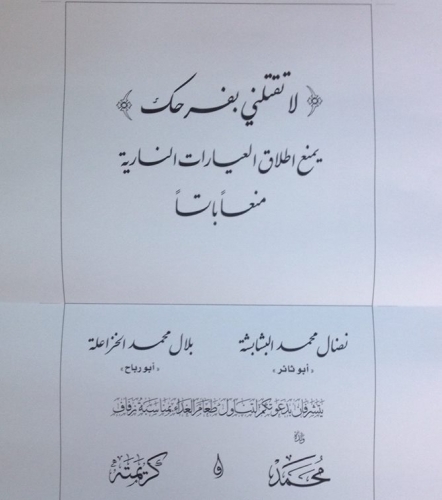 ﴿ لا تقتلني بفرحك ﴾
يمنع اطلاق العيارات النارية
منعاً باتاً
نضال محمد البشابشة بلال محمد الخزاعلة
«ابو ثائر» «ابو رباح»
يتشرفان بدعوتكم لتناول طعام الغداء بمناسبة زفاف
ولده
محمد و كريمته